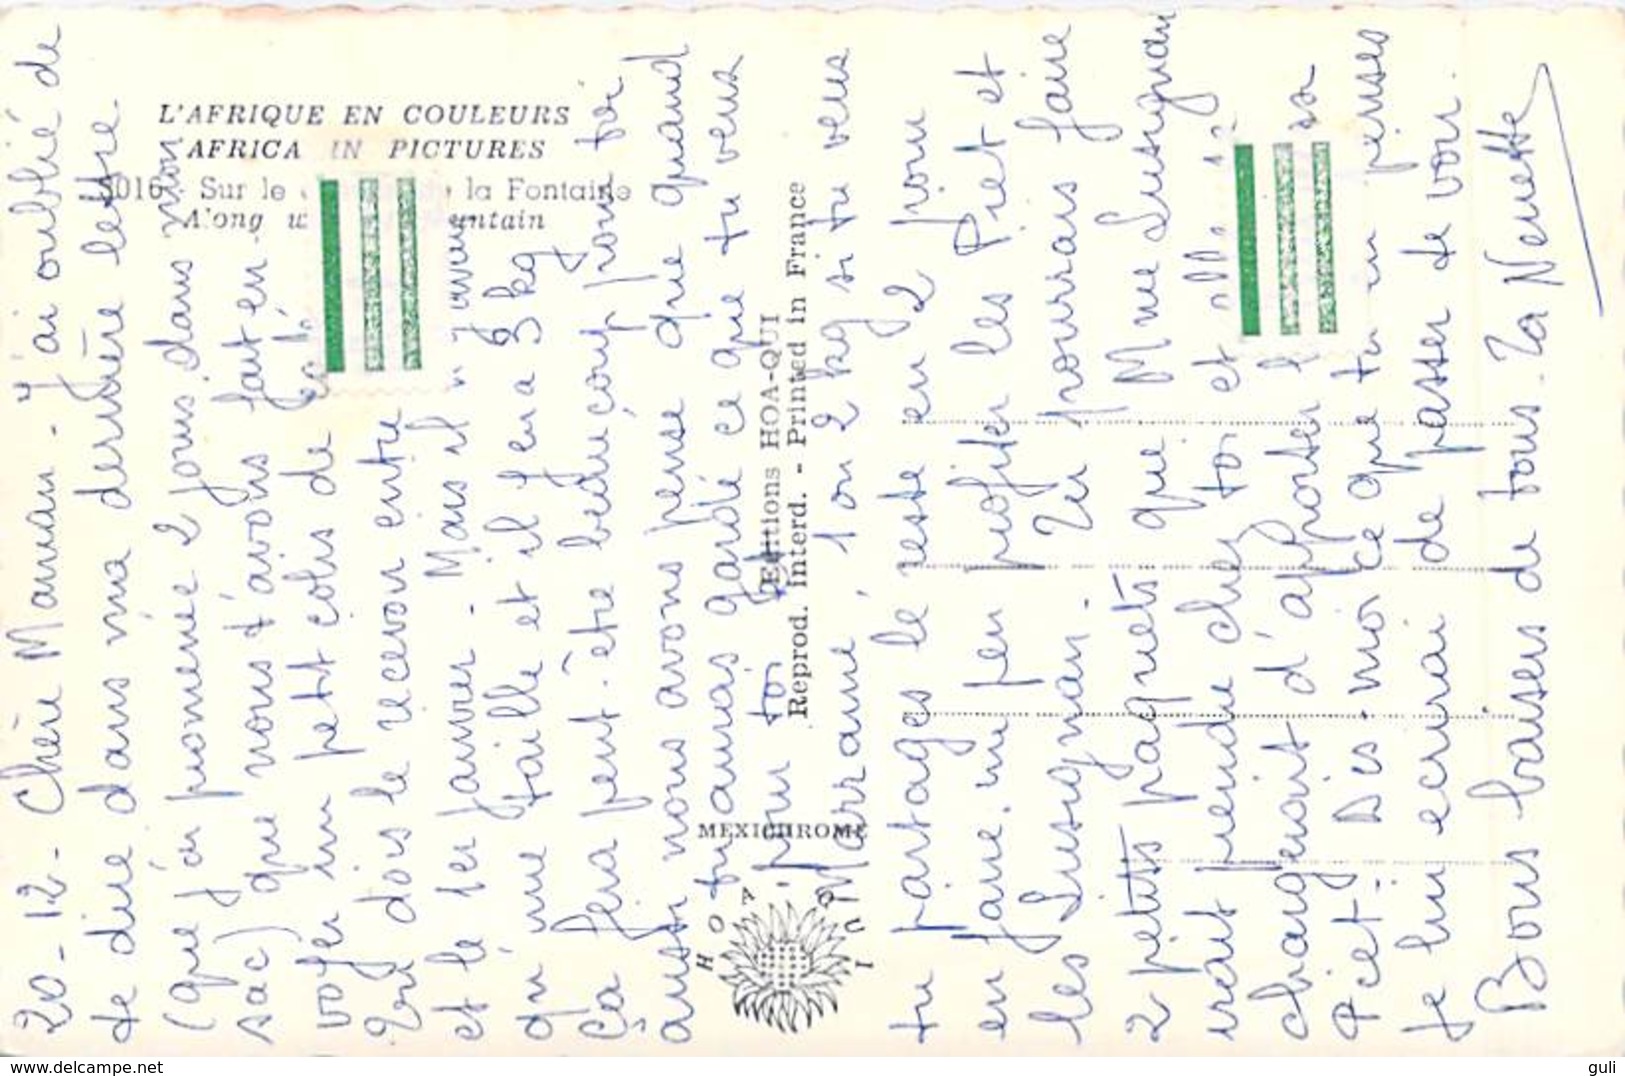 L'AFRIQUE EN COULEURS
AFRICA IN PICTURES
5016 - Sur le la Fontaine
Along
MEXICHROME
HOA-QUI
Editions HOA-QUI
Reprod. interd. - Printed in France
20-12- Chère Maman - J'ai oublié de
te dire dans ma dernière lettre
(que j'ai promenée 2 jours dans mon
sac) que nous t'avons fait en
voyer un petit colis de
Tu dois le recevoir entre
et le 1er Janvier - Mais il n'
qu'une taille et il fera 3 kg
ça fera peut-être beaucoup pour toi
aussi nous avons pensé que quand
tu auras gardé ce que tu veux
pour toi et
Marraine, 1 ou 2 kg si tu veux
tu partages le reste en 2 pour
en faire un peu profiter les Piet et
les Lusignan. Tu pourrais faire
2 petits paquets que Mme Lusignan
irait prendre chez toi et elle se
chargerait d'apporter sa
Piet. Dis-moi ce que tu en penses
Je lui écrirai de passer te voir.
Bons baisers de tous. Ta Nenette
guli